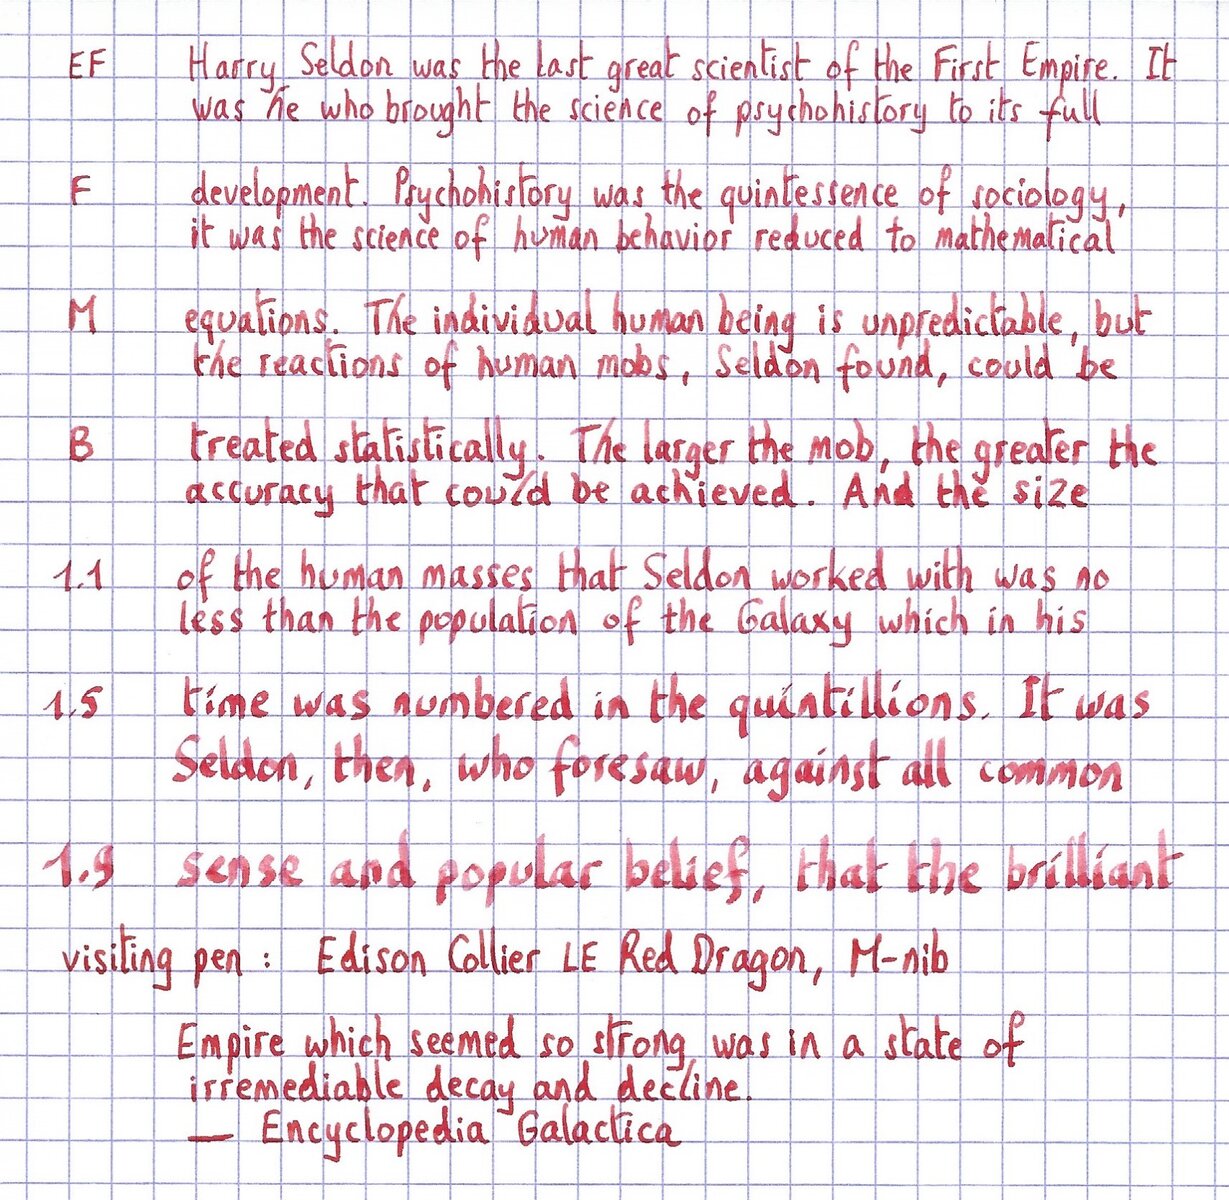 EF Harry Seldon was the last great scientist of the First Empire. It
was he who brought the science of psychohistory to its full
F development. Psychohistory was the quintessence of sociology,
it was the science of human behavior reduced to mathematical
M equations. The individual human being is unpredictable, but
the reactions of human mobs, Seldon found, could be
B treated statistically. The larger the mob, the greater the
accuracy that could be achieved. And the size
1.1 of the human masses that Seldon worked with was no
less than the population of the Galaxy which in his
1.5 time was numbered in the quintillions. It was
Seldon, then, who foresaw, against all common
1.9 sense and popular belief, that the brilliant
visiting pen : Edison Collier LE Red Dragon, M-nib
Empire which seemed so strong was in a state of
irremediable decay and decline.
— Encyclopedia Galactica